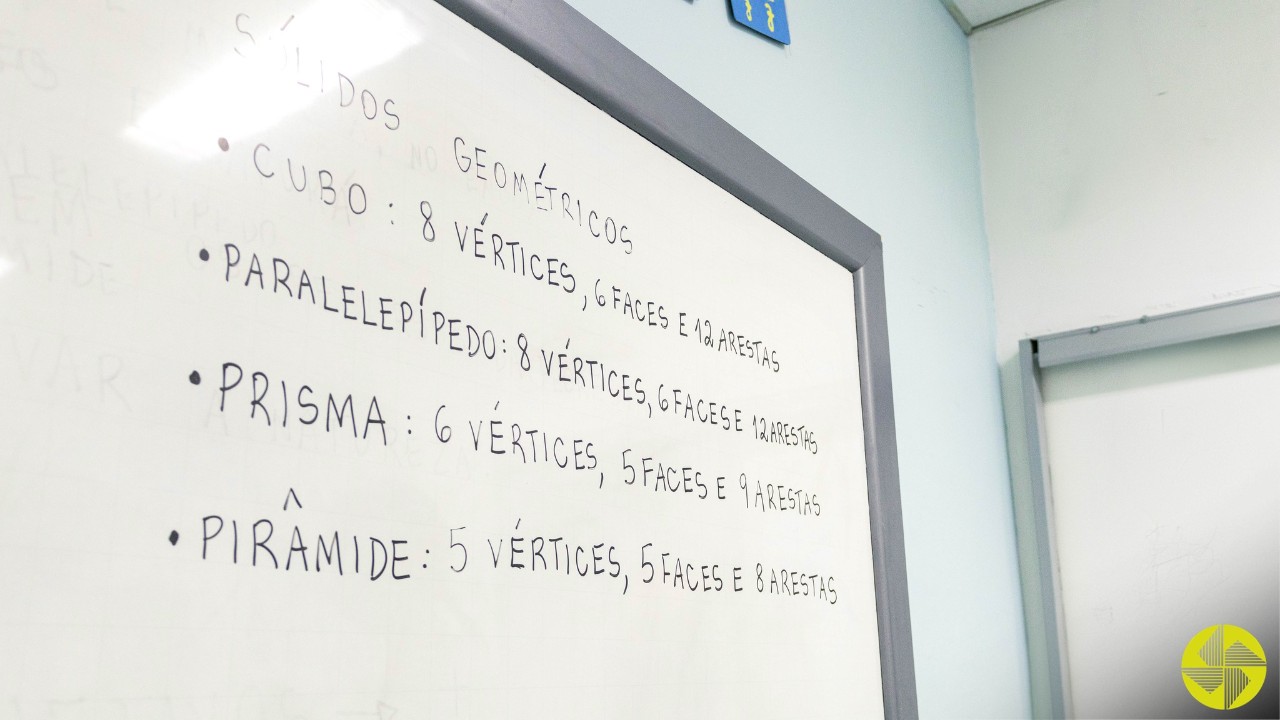 SÓLIDOS GEOMÉTRICOS
• CUBO : 8 VÉRTICES, 6 FACES E 12 ARESTAS
• PARALELEPÍPEDO: 8 VÉRTICES, 6 FACES E 12 ARESTAS
• PRISMA : 6 VÉRTICES, 5 FACES E 9 ARESTAS
• PIRÂMIDE: 5 VÉRTICES, 5 FACES E 8 ARESTAS